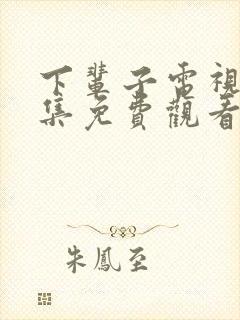 下輩子電視
集免費觀看
朱鳳至